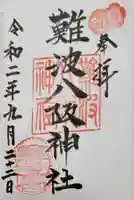 奉拝
難波八阪神社
令和二年九月二十二日